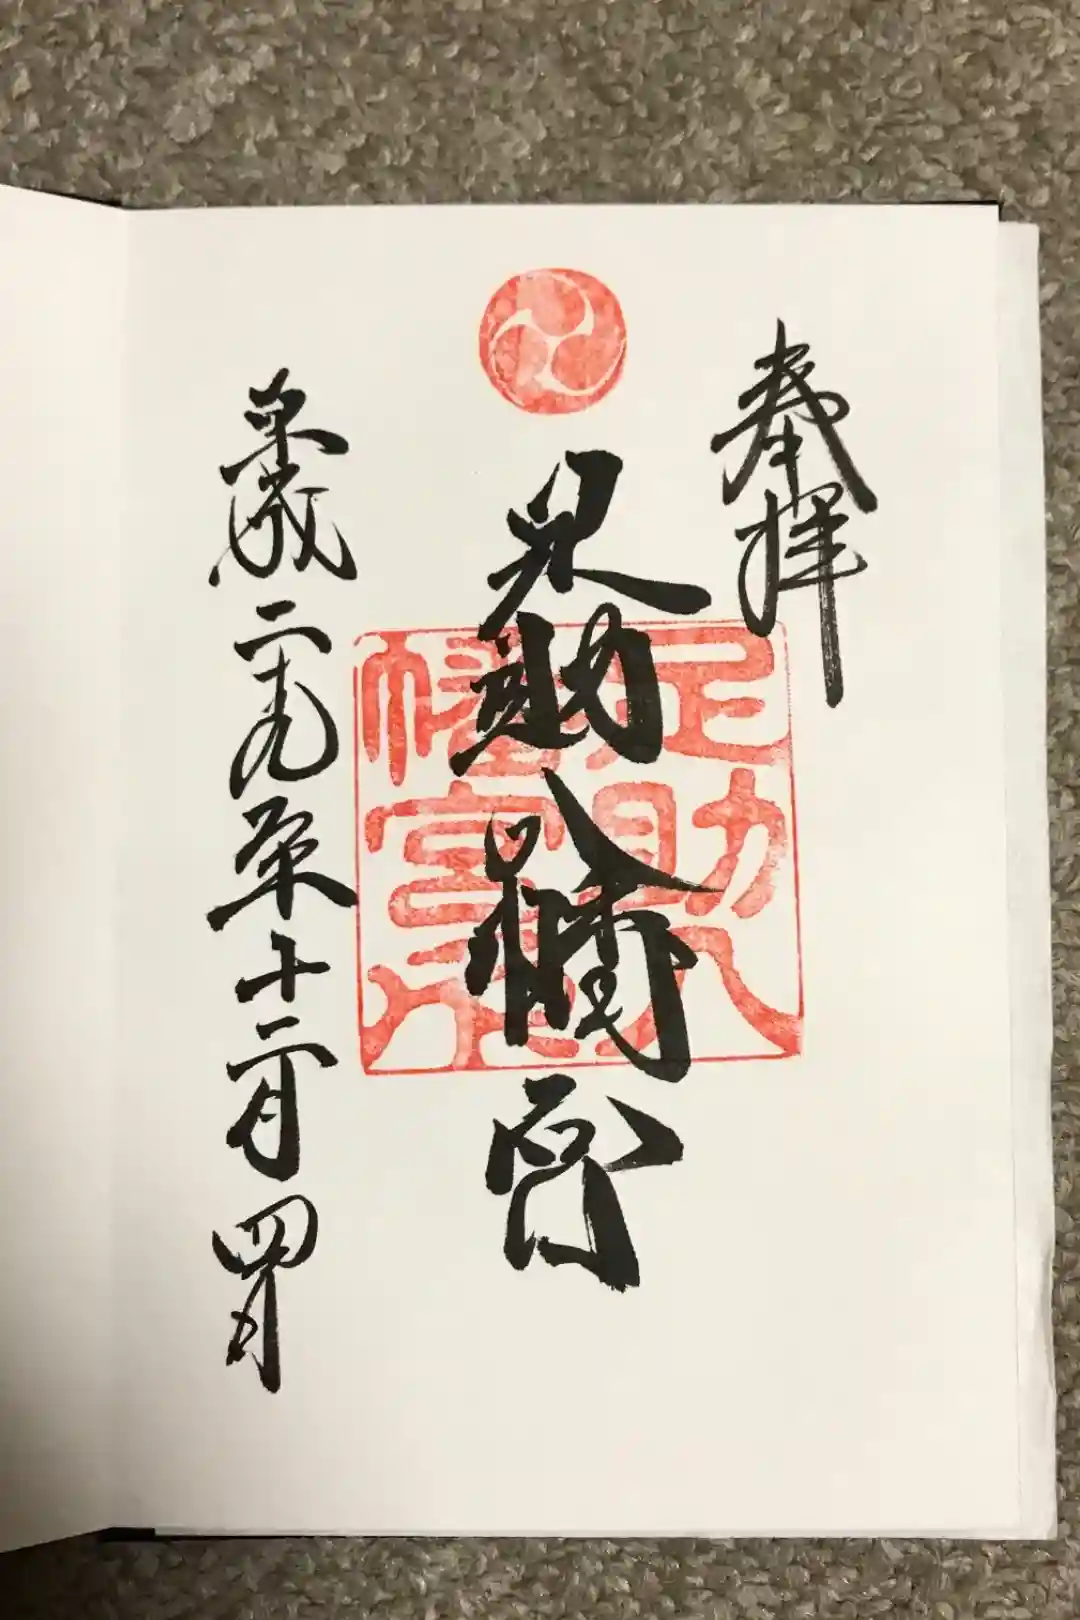 奉拝
足助八幡宮
足助八
幡宮
平成二十九年十二月四日